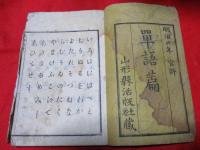 官許
單語篇
山形縣活版社藏
いろはにほへと
ちりぬるをわか
よたれそつねな
らむうゐのおく
やまけふこえて
あさきゆめみし
ゑひもせす